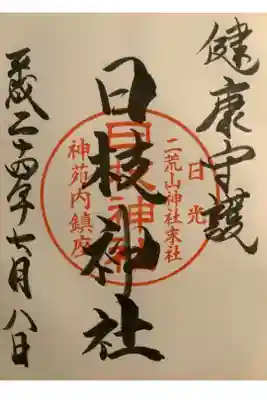 健康守護
日枝神社
平成二十四年七月八日
日光
二荒山神社末社
日枝神社
神苑内鎮座